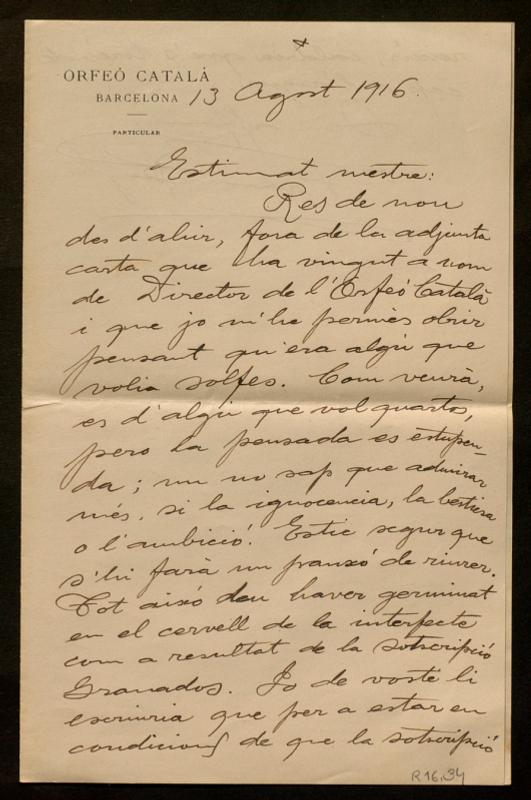 ORFEÓ CATALÀ
BARCELONA
PARTICULAR
13 Agost 1916.
Estimat mestre:
Res de nou
des d'ahir, fora de la adjunta
carta que ha vingut a nom
de Director de l'Orfeó Català
i que jo m'he permès obrir
pensant qu'era algú que
volia solfes. Com veurà,
es d'algú que vol quartos,
pero la pensada es estupen-
da; un no sap que admirar
més, si la ignocencia, la bestiesa
o l'ambició! Estic segur que
s'hi farà un panxó de riurer.
Tot aixó deu haver germinat
en el cervell de la interfecte
com a resultat de la sotscripció
Granados. Jo de vosté li
escriuria que per a estar en
condicions de que la sotscripció
R16,34